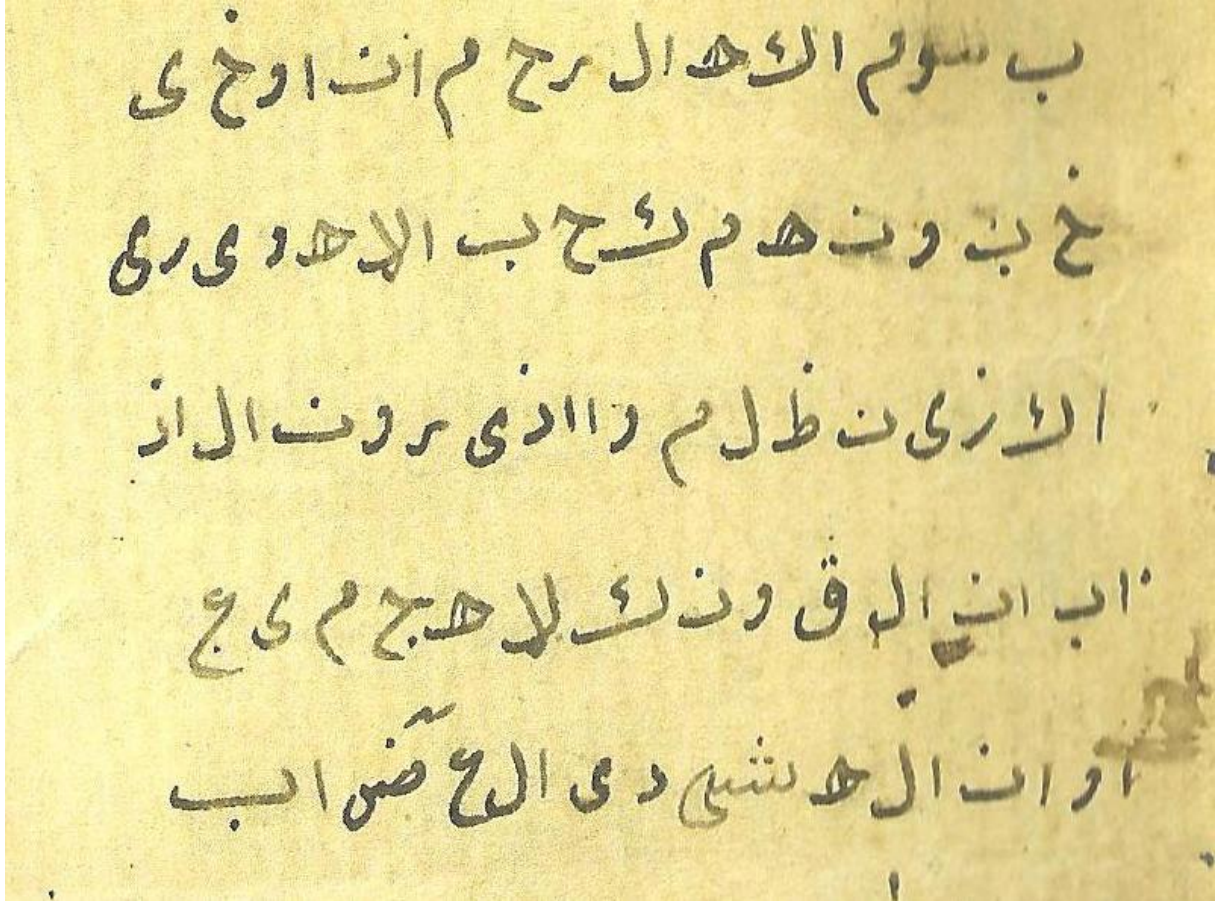 ب سوم الاه ال رح م ان اوخ ى
خ ب ون ه م ك ح ب الاه وى رى
الا زى ن ظ ل م وااذى ر ون ال اذ
اب ان ال ق ون ك لا ه ج م ى ع
او ان ال ه دى ال ع اب